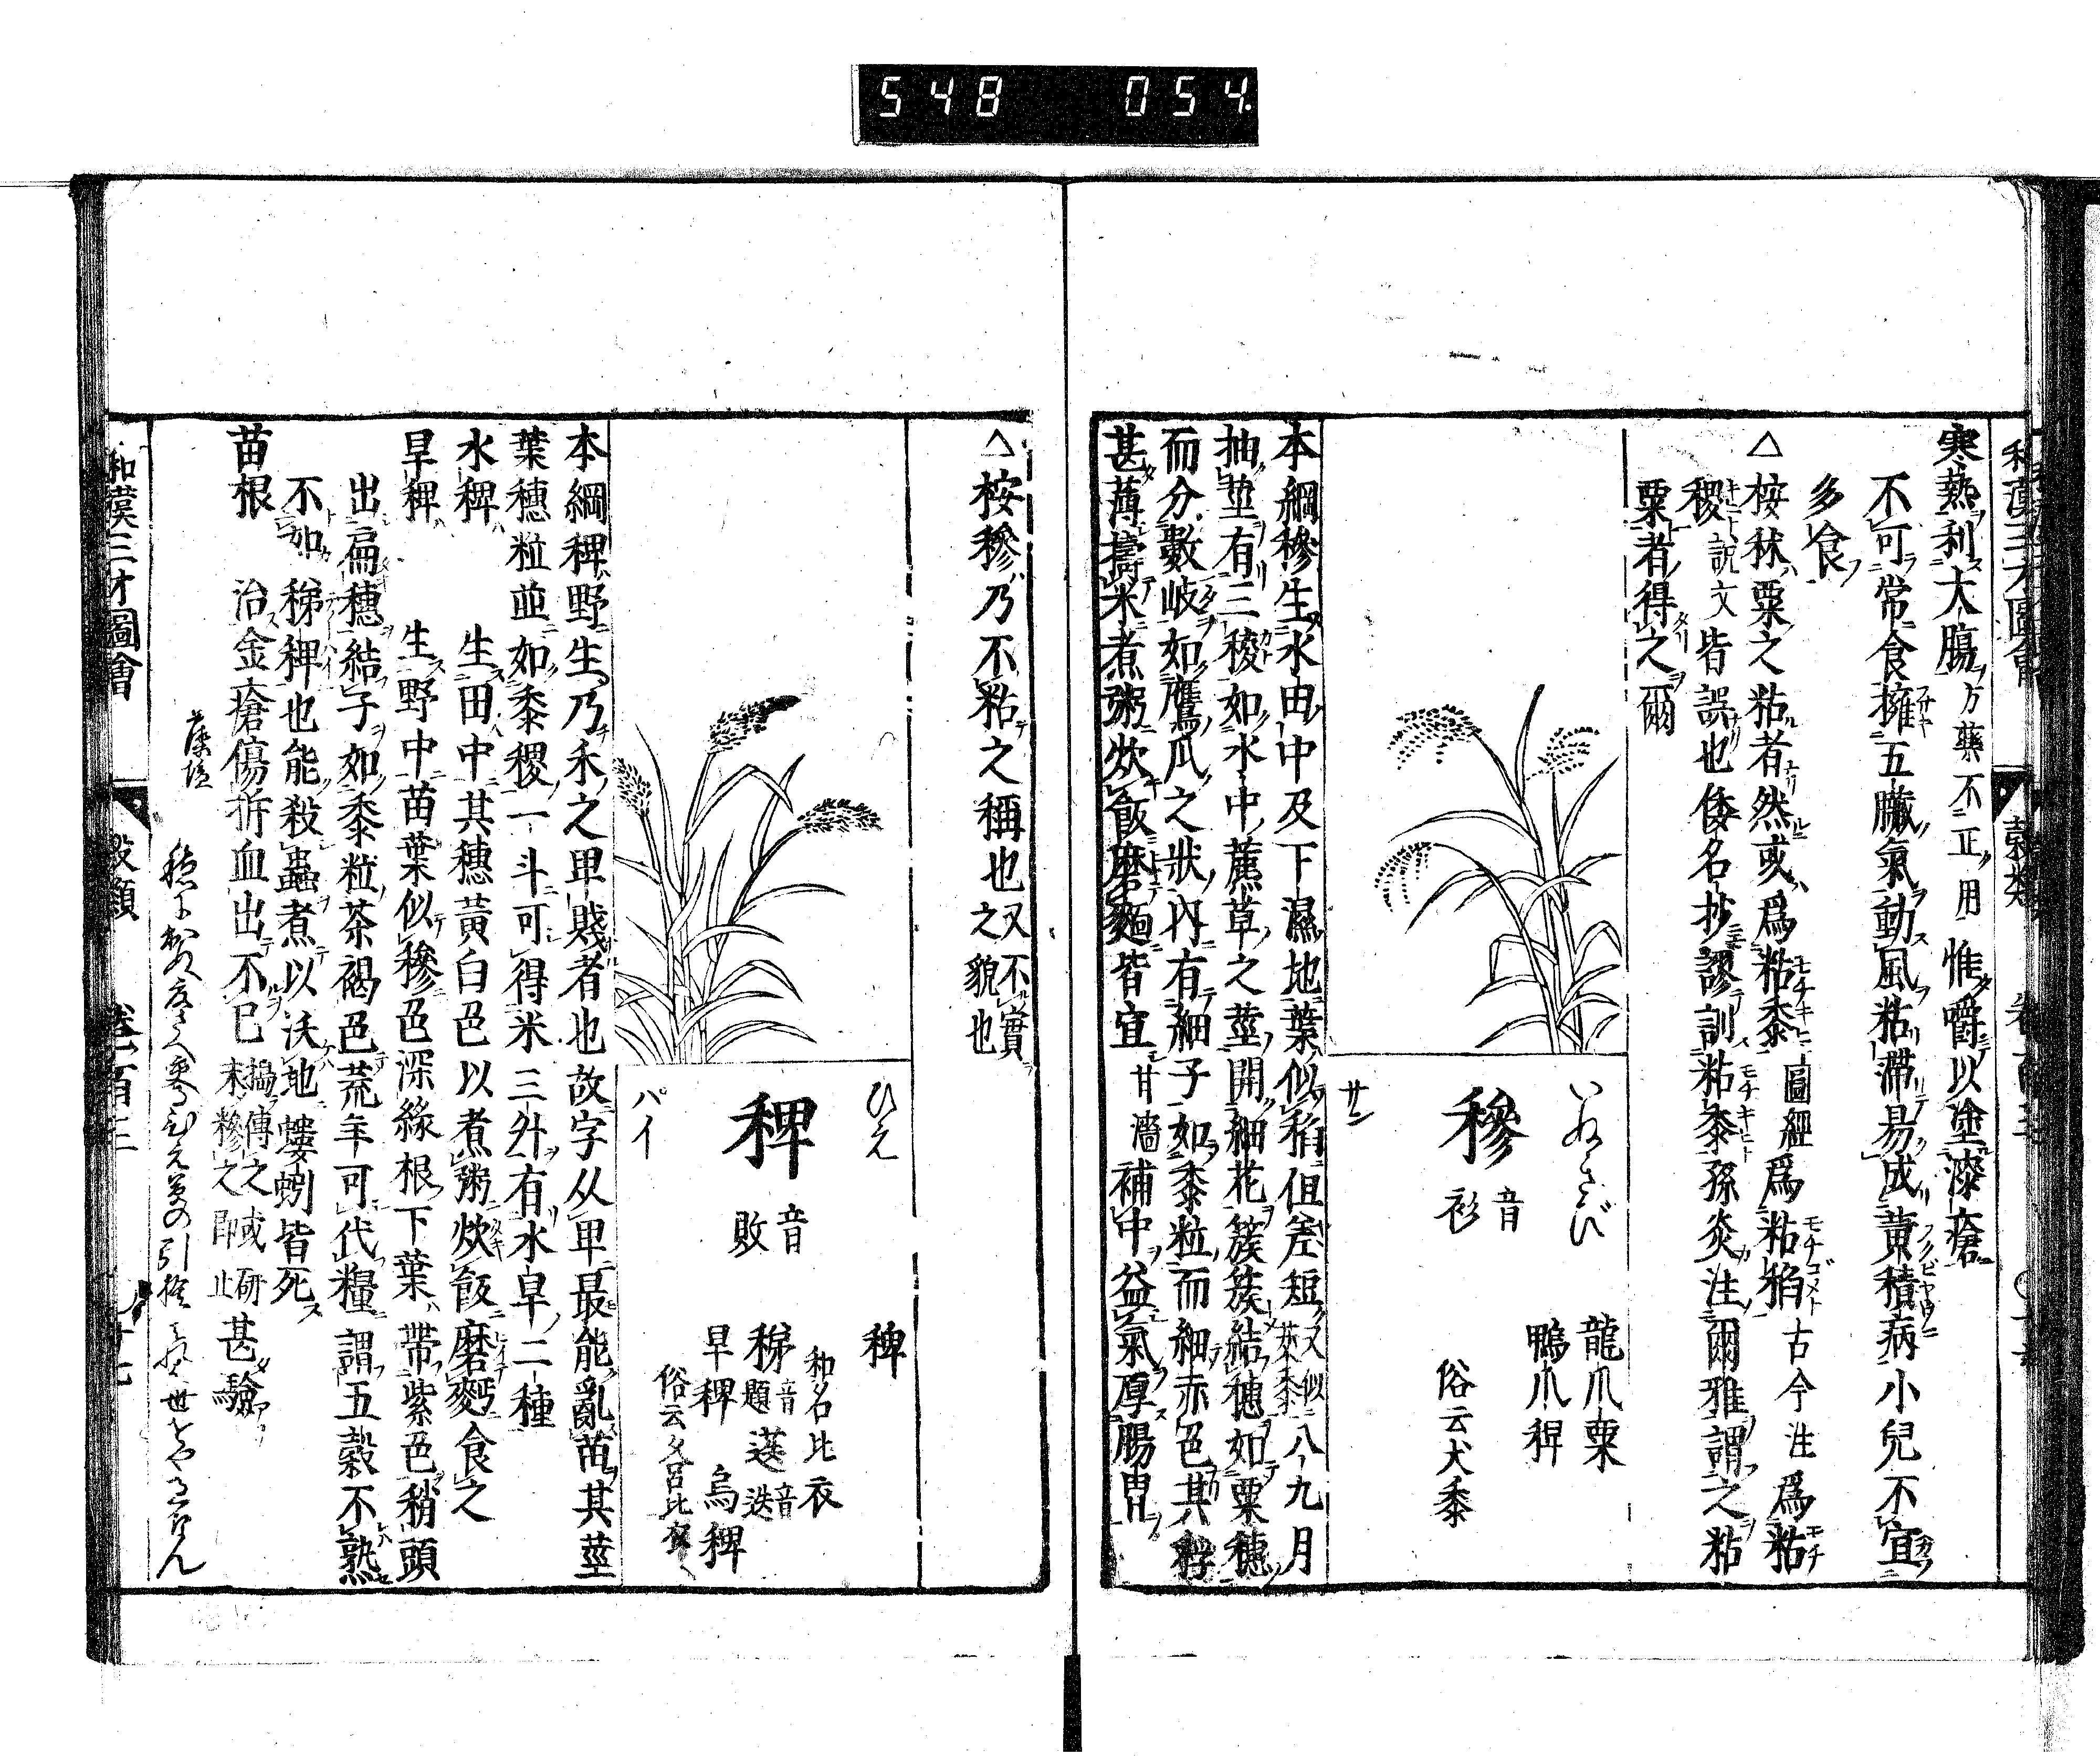 548 054.
寒熱利大腸方藥不正用惟嚼以塗漆瘡
不可常食擁五臟氣動風粘滯易成黄積病小兒不宜
多食
△按秫粟之粘者然或爲粘黍圖經爲粘稻古今注爲粘
稷説文皆誤也倭名抄謬訓粘黍孫炎注爾雅謂之粘
粟者得之爾
いぬきび
穇
音衫
サン
龍爪粟
鴨爪稗
俗云犬黍
本綱穇生水田中及下濕地葉似稻但差短又似茭黍八九月
抽莖有三稜如水中藨草之莖開細花簇簇結穗如粟穗
而分數岐如鷹爪之狀内有細子如黍粒而細赤色其稃
甚薄擣米煮粥炊飯磨麵皆宜甘濇補中益氣厚腸胃
△按穇乃不粘之稱也又不實之貌也
ひえ
稗
音敗
パイ
稗
和名比衣
稊音題 䓞音迭
旱稗 烏稗
本綱稗野生乃禾之卑賤者也故字从卑最能亂苗其莖
葉穗粒並如黍稷一斗可得米三升有水旱二種
水稗 生田中其穗黄白色以煮粥炊飯磨麪食之
旱稗 生野中苗葉似穇色深綠根下葉帶紫色稍頭
出扁穗結子如黍粒茶褐色荒年可代糧謂五穀不熟
不如稊稗也能殺蟲煮以沃地螻蚓皆死
苗根 治金瘡傷折血出不已搗傳之或研末糝之即止甚驗
和漢三才圖會
穀類
卷百三